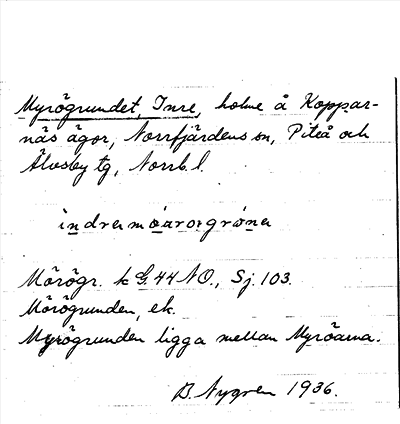 Myrögrundet, Inre, holme å Koppar-
näs ägor, Norrfjärdens sn, Piteå och
Älvsby tg, Norrb. l.
indrermoarorgröner
Mörögr. k G. 44 NO., Sj. 103.
Mörögrunden, ek.
Myrögrunden ligga mellan Myröarna.
B. Nygren 1936.